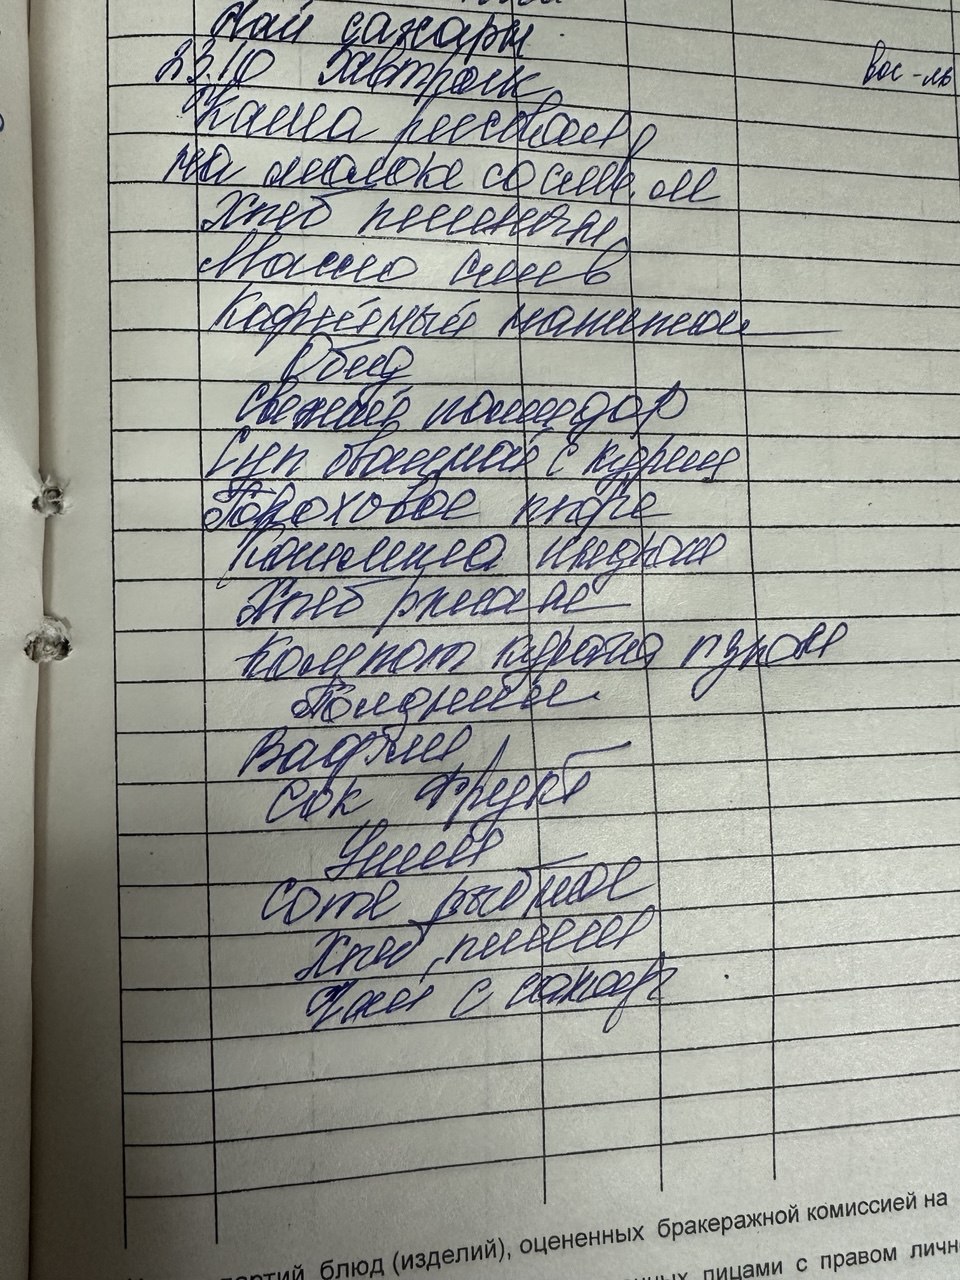 Чай сахарн
23.10 Завтрак
вос-ль
Каша рисовая
на молоке со слив. м
Хлеб пшеничн
Масло слив
Кофейный напиток
Обед
Свежий помидор
Суп овощной с куриц
Гороховое пюре
индейки
Хлеб ржаной
Компот курага изюм
Полдник
Вафли
Сок фрукт
Ужин
Соте рыбное
Хлеб пшенич
Чай с сахар
партий блюд (изделий), оцененных бракеражной комиссией на
лицами с правом личн